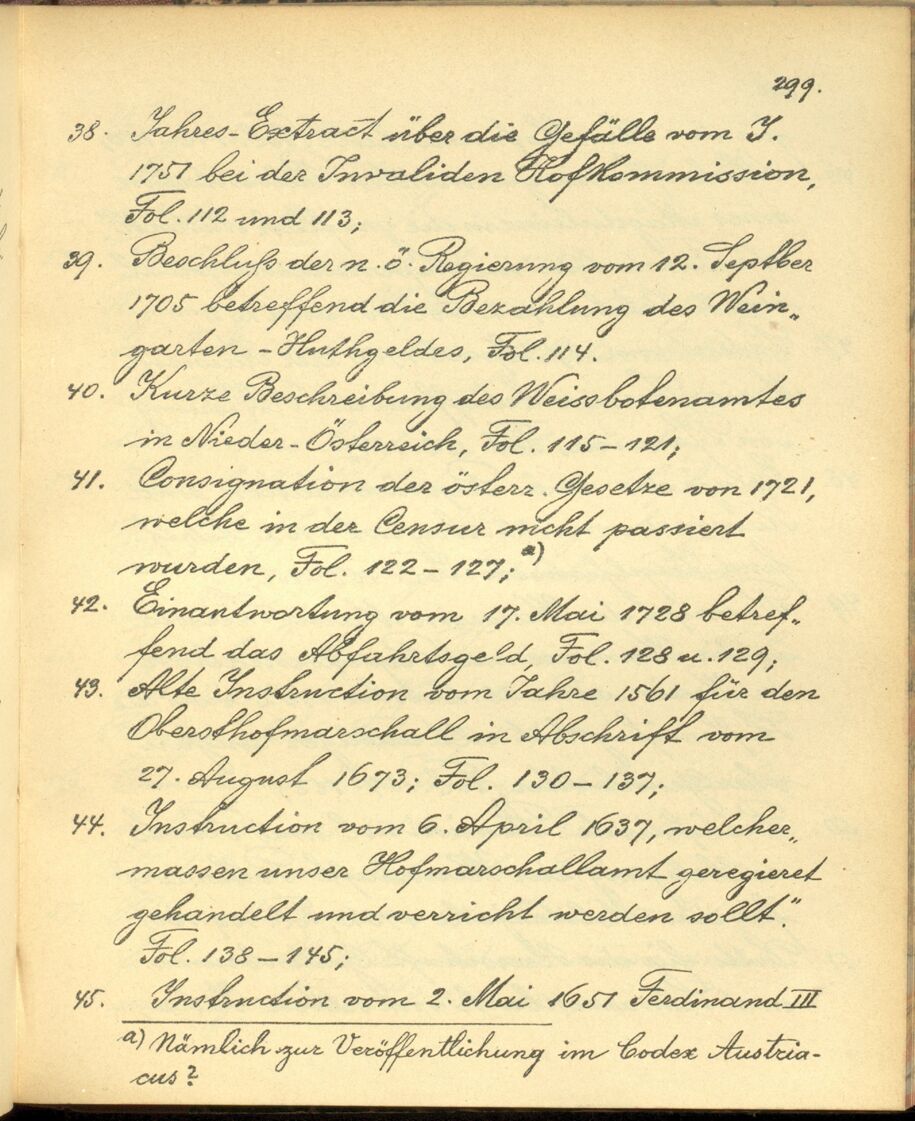 299.
38. Jahres-Extract über die Gefälle vom J.
1751 bei der Invaliden Hofkommission,
Fol. 112 und 113;
39. Beschluß der n. ö. Regierung vom 12. Septber
1705 betreffend die Bezahlung des Wein„
garten-Huthgeldes, Fol. 114.
40. Kurze Beschreibung des Weissbotenamtes
in Nieder-Österreich, Fol. 115-121;
41. Consignation der österr. Gesetze von 1721,
welche in der Censur nicht passiert
wurden, Fol. 122-127; a)
42. Einantwortung vom 17. Mai 1728 betref„
fend das Abfahrtsgeld, Fol. 128 u. 129;
43. Alte Instruction vom Jahre 1561 für den
Obersthofmarschall in Abschrift vom
27. August 1673; Fol. 130-137;
44. Instruction vom 6. April 1637, welcher„
massen unser Hofmarschallamt geregieret
gehandelt und verricht werden sollt."
Fol. 138-145;
45. Instruction vom 2. Mai 1651 Ferdinand III
a) Nämlich zur Veröffentlichung im Codex Austria-
cus?